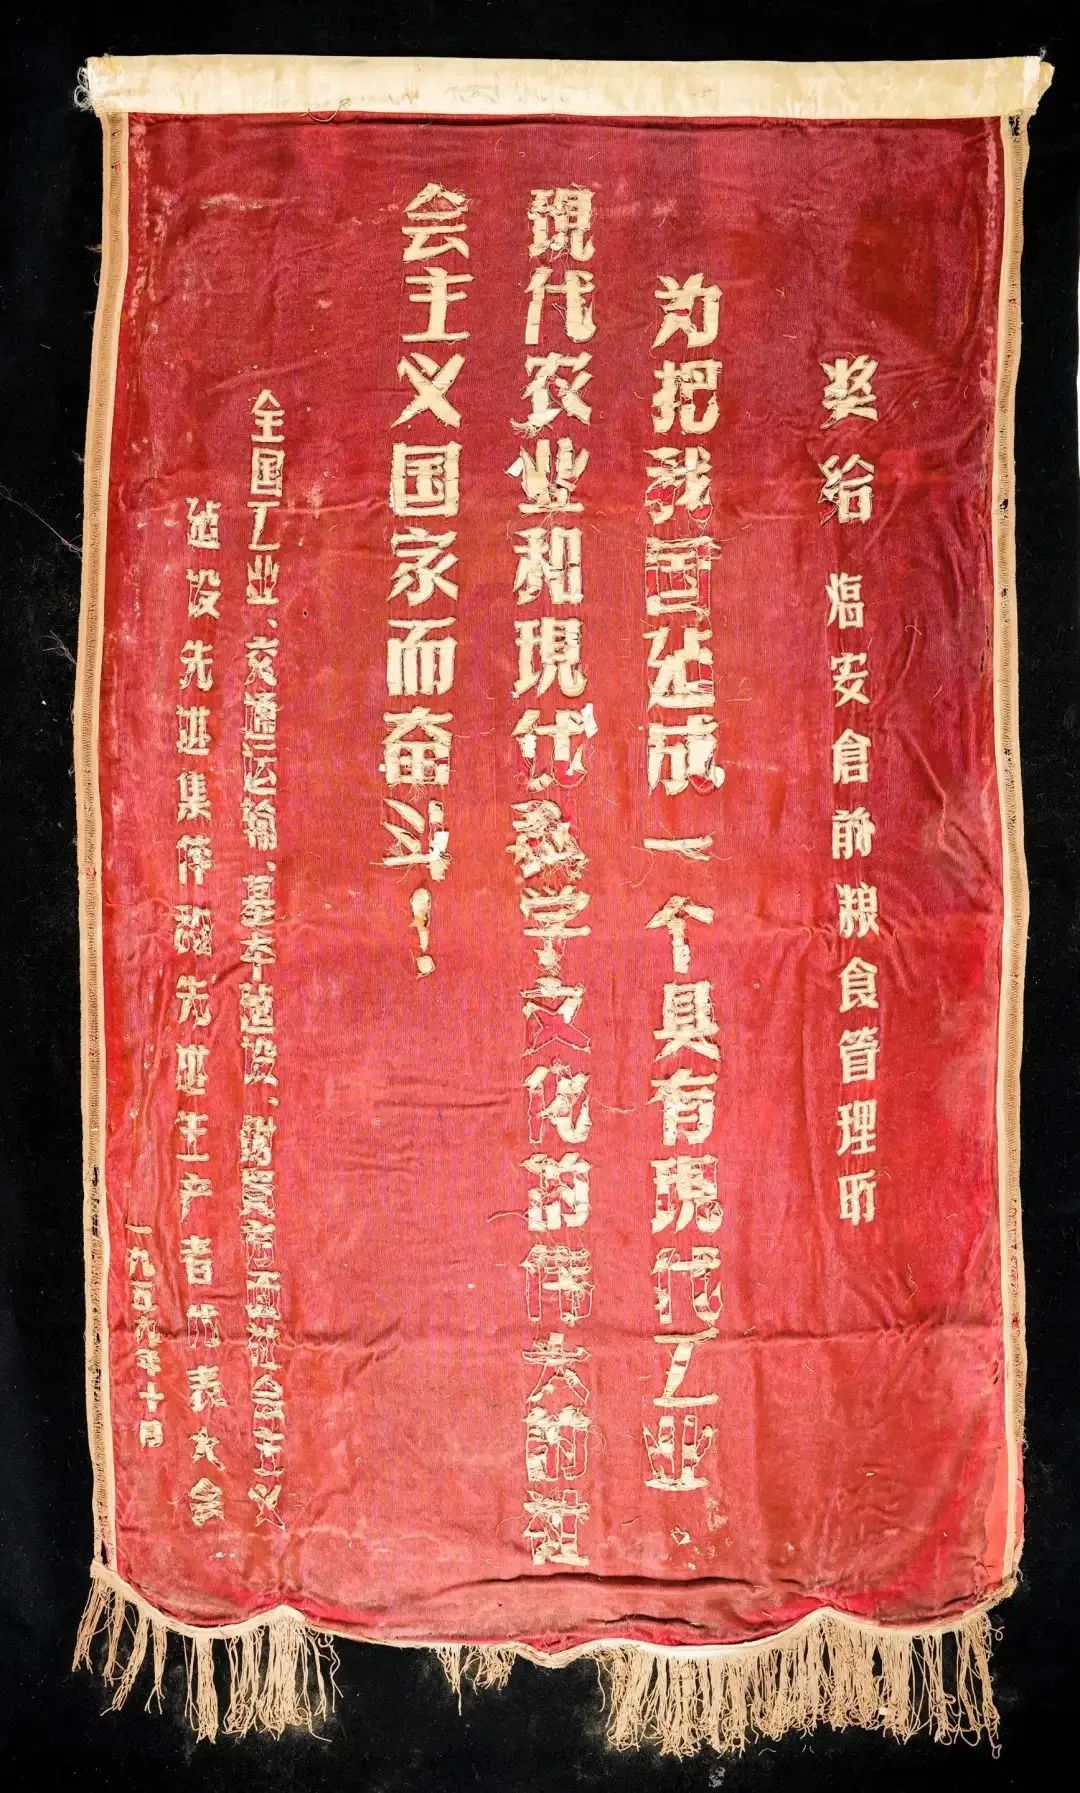 奖给 临安倉前粮食管理所
为把我国建成一个具有現代工业、
現代农业和現代科学文化的伟大的社
会主义国家而奋斗！
全国工业、交通运输、基本建设、財貿方面社会主义
建设先进集体和先进生产者代表大会
一九五九年十月